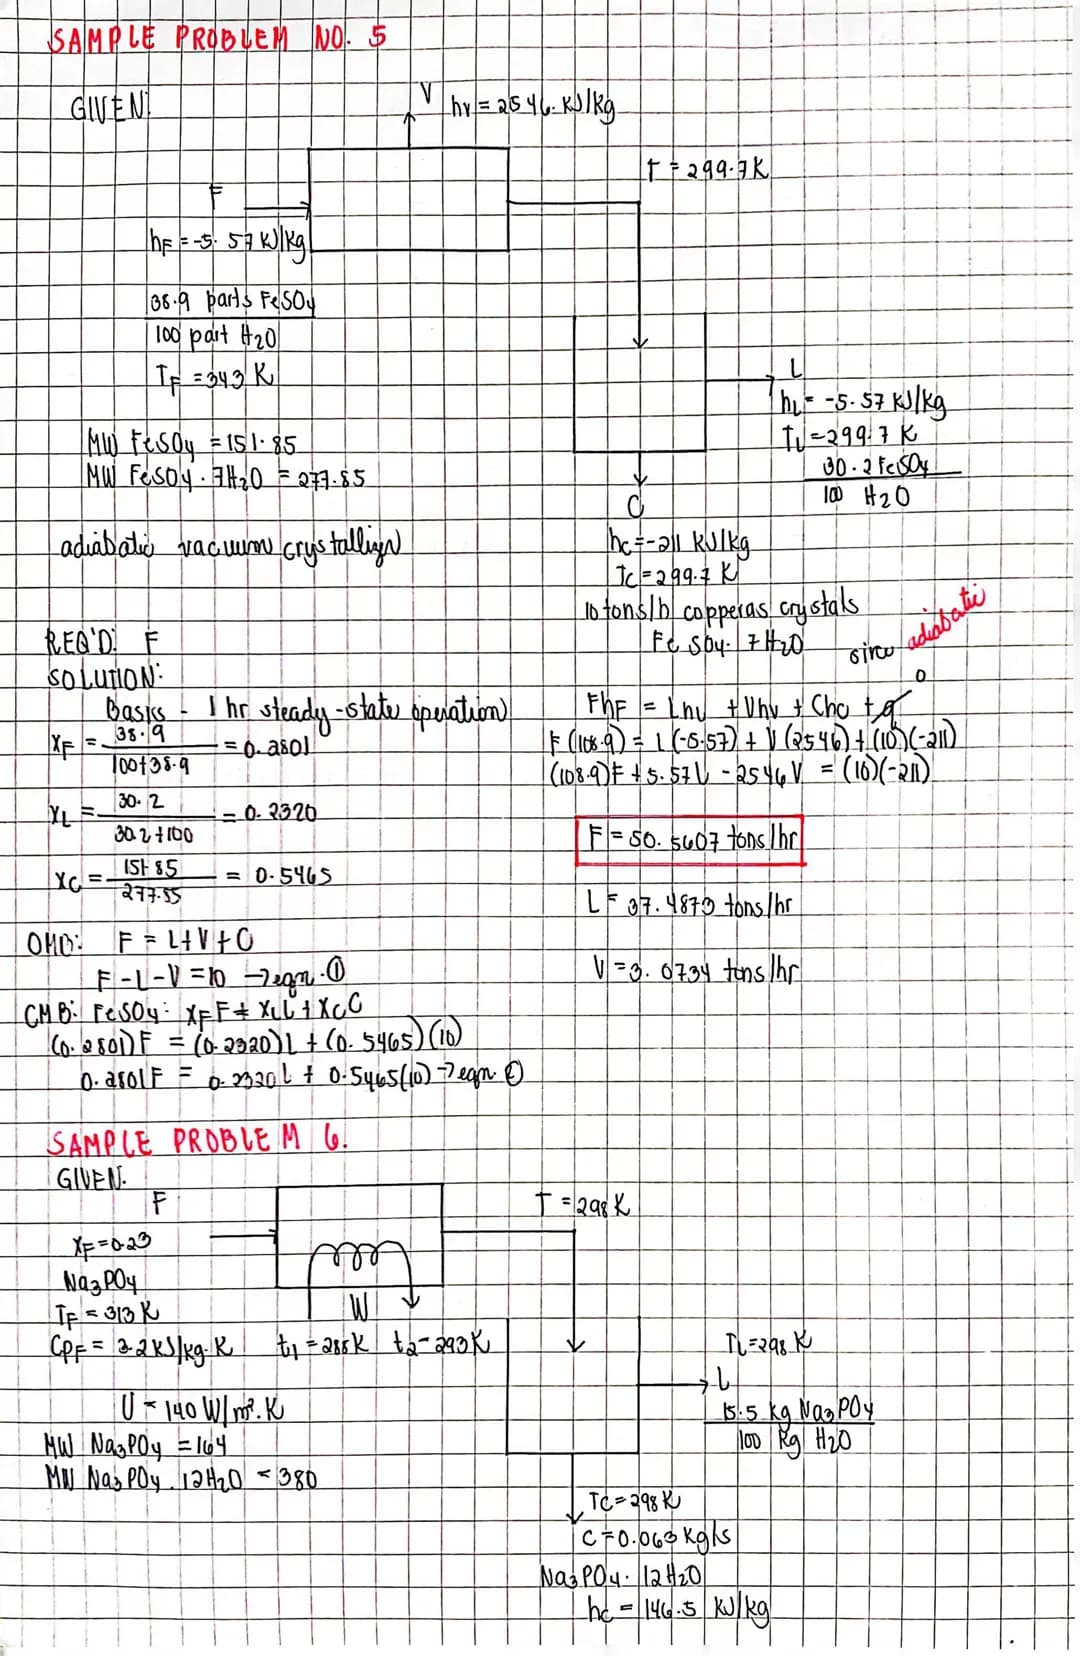 SAMPLE PROBLEM NO. 5
GIVEN:
V
hv = 2546. KJ/kg
T = 299.7K
F
hF = -5.57 KJ/kg
38.9 parts FeSO4
100 part H2O
TF = 343 K
L
hL = -5.57 KJ/kg
TL = 299.7 K
30.2 FeSO4
100 H2O
MW FeSO4 = 151.85
MW FeSO4 · 7H2O = 277.85
C
adiabatic vacuum crystallizn
hc = -211 KJ/kg
Tc = 299.7 K
10 tons/h copperas crystals
FeSO4 · 7H2O
since adiabatic
REQ'D: F
SOLUTION:
Basis - 1 hr steady-state operation)
XF = 38.9 / 100+38.9 = 0.2801
XL = 30.2 / 30.2+100 = 0.2320
XC = 151.85 / 277.55 = 0.5465
OMB: F = L+V+C
F-L-V = 10 → eqn. ①
CMB: FeSO4: XFF = XLL + XCC
(0.2801)F = (0.2320)L + (0.5465)(10)
0.2801F = 0.2320L + 0.5465(10) → eqn. ②
0
FhF = LhL + Vhv + Chc + q
F(108.9) = L(-5.57) + V(2546) + (10)(-211)
(108.9)F + 5.57L - 2546V = (10)(-211)
F = 50.5607 tons/hr
L = 37.4873 tons/hr
V = 3.0734 tons/hr
SAMPLE PROBLEM 6.
GIVEN.
F
T = 298 K
XF = 0.23
Na3PO4
TF = 313 K
CPF = 3.2 KJ/kg·K
W
t1 = 288K t2 = 293K
TL = 298 K
L
15.5 kg Na3PO4
100 kg H2O
U = 140 W/m².K
MW Na3PO4 = 164
MW Na3PO4 · 12H2O = 380
TC = 298 K
C = 0.063 Kg/s
Na3PO4 · 12H2O
hc = 146.5 KJ/kg